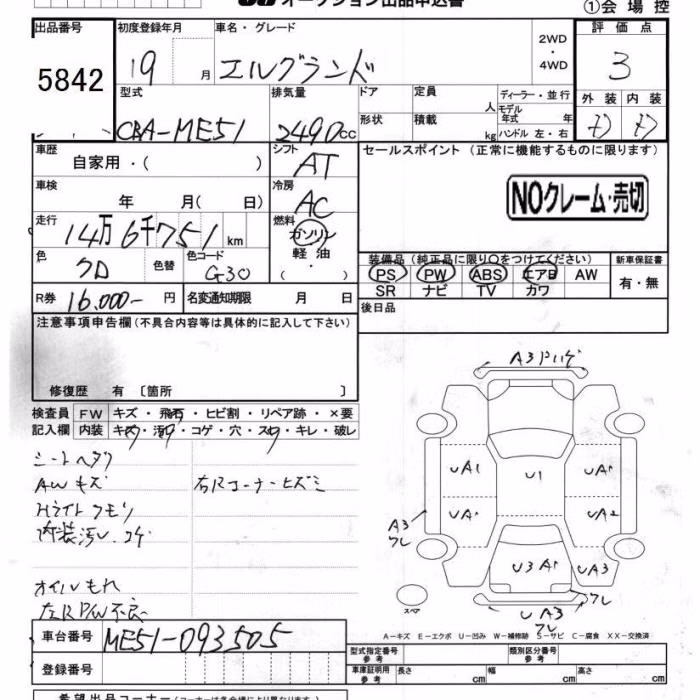 オークション出品申込書
①会場控
出品番号
5842
初度登録年月
19 月
車名・グレード
エルグランド
2WD
・
4WD
評価点
3
型式
CBA-ME51
排気量
2490cc
ドア
定員
人
ディーラー・並行
モデル
年式 年
外装 内装
形状
積載
kg
ハンドル 左・右
車歴
自家用・( )
シフト
AT
セールスポイント (正常に機能するものに限ります)
車検
年 月( 日)
冷房
AC
NOクレーム・売切
走行
14万6千751 km
燃料
ガソリン
・
軽油
色
クロ
色替
色コード
G30
装備品 (純正品に限り○をつけてください)
PS PW ABS エアB AW
SR ナビ TV カワ
新車保証書
有・無
R券
16.000- 円
名変通知期限 月 日
後日品
注意事項申告欄(不具合内容等は具体的に記入して下さい)
修復歴 有〔箇所 〕
検査員
記入欄
FW キズ・飛石・ヒビ割・リペア跡・×要
内装 キズ・汚・コゲ・穴・スリ・キレ・破レ
シートヘタリ
AWキズ
右Rコーナーヒズミ
Hライトクモリ
内装汚レ.コゲ
オイルもれ
左RP/W不良
A3
UA1
U1
A3
ワレ
UA2
U3
UA3
ワレ
スペア
UA3
ワレ
A-キズ E-エクボ U-凹み W-補修跡 S-サビ C-腐食 XX-交換済
車台番号
ME51-093505
登録番号
型式指定番号
参考
類別区分番号
参考
車庫証明用
参考
長さ cm
幅 cm
高さ cm
希望出品コーナー